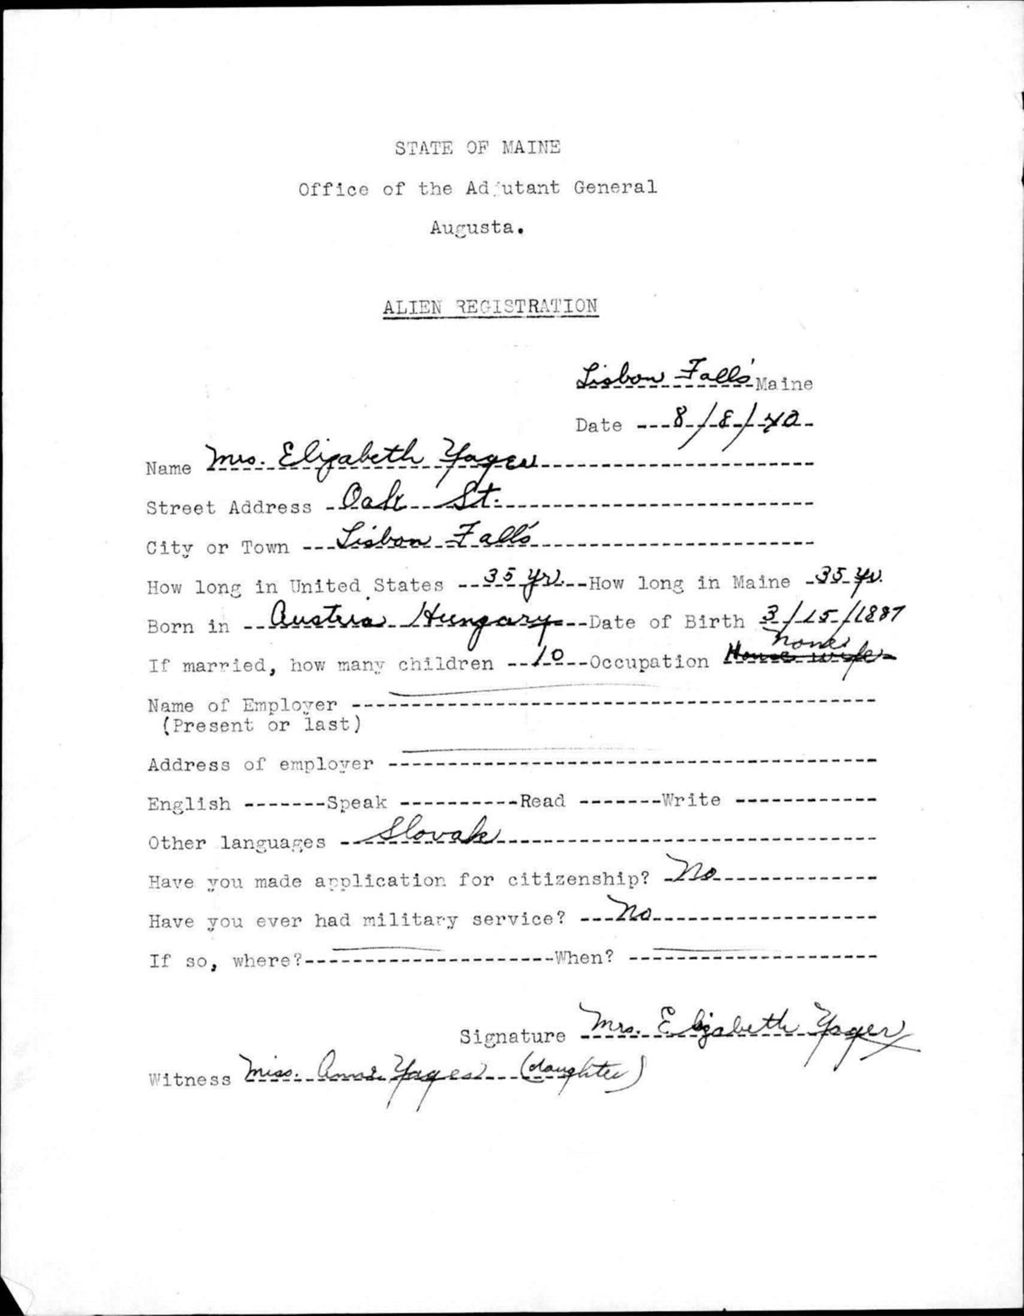 STATE OF MAINE
Office of the Adjutant General
Augusta.
ALIEN REGISTRATION
Lisbon Falls Maine
Date 8/8/40
Name Mrs. Elizabeth Yager
Street Address Oak St.
City or Town Lisbon Falls
How long in United States 35 yr. How long in Maine 35 yr.
Born in Austria Hungary Date of Birth 3/15/1887
none
If married, how many children 10 Occupation House wife
Name of Employer
(Present or last)
Address of employer
English Speak Read Write
Other languages Slovak
Have you made application for citizenship? No
Have you ever had military service? No
If so, where? When?
Signature Mrs. Elizabeth Yager
Witness Miss. Anna Yager (daughter)